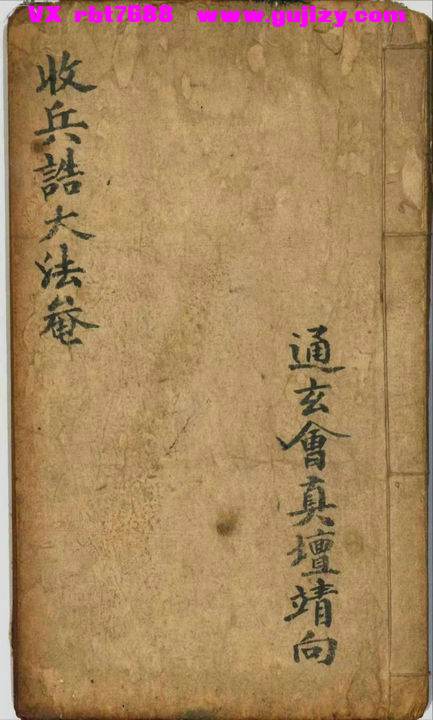 VX rbt7588 www.gujlzy.com
通玄會真壇靖向
收兵誥大法菴